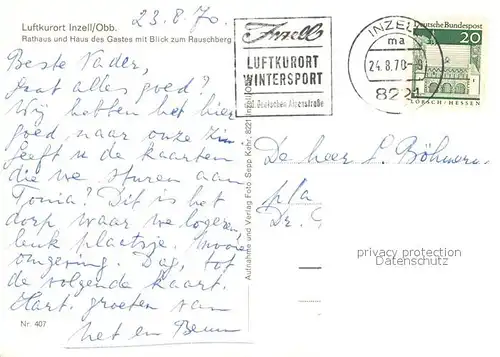 23.8.70.
Luftkurort Inzell/Obb.
Rathaus und Haus des Gastes mit Blick zum Rauschberg
Beste Nader,
Gaat alles goed?
Wij hebben het hier
goed naar onze zin
Geeft u de kaarten
die we sturen aan
Tonia? Dit is het
dorp waar we logeren
leuk plaatsje. Mooie
omgeving. Dag, tot
de volgende kaart.
Hart. groeten van
het en
Nr. 407
Aufnahme und Verlag Foto Sepp Kehr, 8221 Inzell/Obb.
Inzell
LUFTKURORT
WINTERSPORT
Deutschen Alpenstraße
INZELL
ma
24.8.70-
8221
Deutsche Bundespost
20
LORSCH/HESSEN
De heer L. Böhmer
p/a
Dr.
privacy protection
Datenschutz